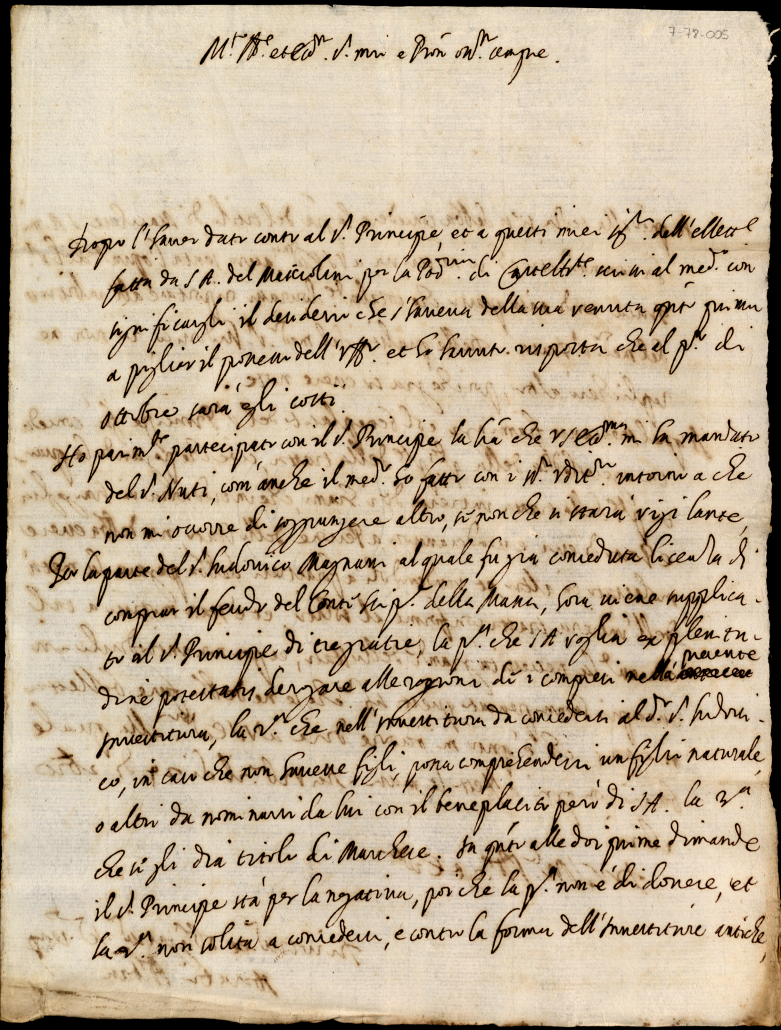 7-78-005
M.to Ill.re et Ecc.te S.r mio e Pron oss.mo sempre.
Dopo l'haver dato conto al S.r Principe et a questi miei ss.ri dell'elletto
fatta da S A. del Masciolini per la Pod.ria di Castelf.te scrissi al med.o con
significargli il desiderio che s'haveva della sua venuta q.to prima
a pigliar il possesso dell'uff.o et ho havuto risposta che al p.o di
ottobre sarà egli costì.
Ho parim.te partecipato con il S.r Principe la l.ra che V S Ecc.ma mi ha mandato
del S.r Nuti, com'anche il med.o ho fatto con i ss.ri Udit.ri intorno a che
non mi occorre di soggiungere altro, se non che si starà vigilante,
Per la parte del S.r Ludovico Magnani al quale fu già conceduta licenza di
comprar il feudo del Conte Scip.e della Massa, hora viene supplica-
to il S.r Principe di tre gratie, la p.a che S A voglia ex plenitu-
dine potestatis derogare alle ragioni de i compresi nella presente
Investitura, la 2.a che nell'Investitura da concedersi al d.o S.r Ludovi-
co, in caso che non havesse figli, possa comprehendersi un figlio naturale,
o altri da nominarsi da lui con il beneplacito però di S A. la 3.a
che se gli dia titolo di Marchese. In q.to alle doi prime dimande
il S.r Principe stà per la negativa, poi che la p.a non è di dovere, et
la 2.a non solita a concedersi, e contro la forma dell'Investiture antiche,